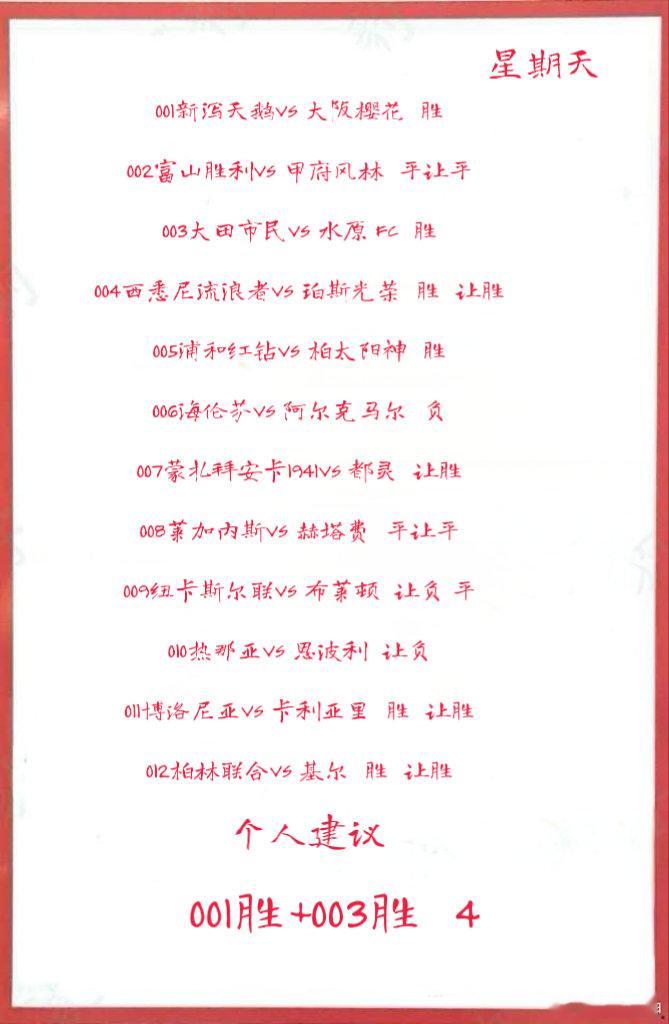 星期天
001新泻天鹅VS 大阪樱花 胜
002富山胜利VS 甲府风林 平让平
003大田市民VS 水原 FC 胜
004西悉尼流浪者VS 珀斯光荣 胜 让胜
005浦和红钻VS 柏太阳神 胜
006海伦芬VS 阿尔克马尔 负
007蒙扎拜安卡1941VS 都灵 让胜
008莱加内斯VS 赫塔费 平让平
009纽卡斯尔联VS 布莱顿 让负 平
010热那亚VS 恩波利 让负
011博洛尼亚VS 卡利亚里 胜 让胜
012柏林联合VS 基尔 胜 让胜
个人建议
001胜+003胜 4